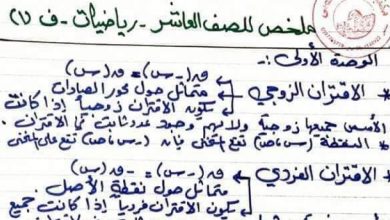 ملخص للصف العاشر - رياضيات - ف (١)
الوحدة الأولى :-
* الاقتران الزوجي
ق(-س) = ق(س)
متماثل حول محور الصادات
يكون الاقتران زوجياً إذا كانت
الأسس جميعها زوجية ولا يهم وجود عدد ثابت مع الاقتران.
* النقطة (س،ص) تقع المنحنى فإن (-س،ص) تقع على المنحنى
* الاقتران الفردي
ق(-س) = -ق(س)
متماثل حول نقطة الأصل
يكون الاقتران فردياً إذا كانت جميع